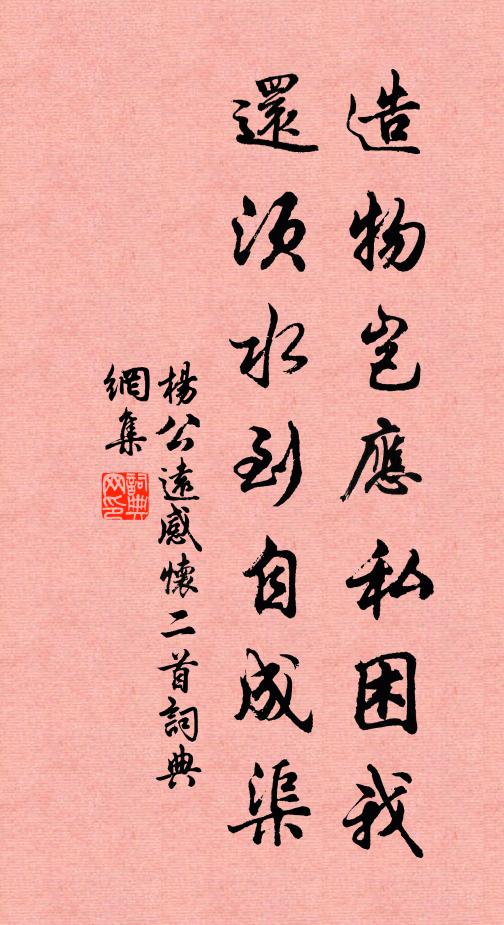 造物岂應私困我
還須水到自成渠
楊公遠感懷二首詞典
網集
詞典
网印